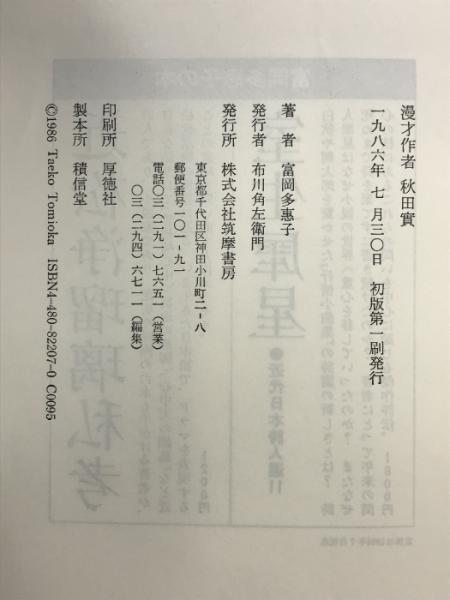 漫才作者 秋田實
一九八六年 七 月三〇日 初版第一刷発行
著 者 富岡多惠子
発行者 布川角左衛門
発行所 株式会社筑摩書房
東京都千代田区神田小川町二-八
郵便番号一〇一-九一
電話〇三(二九一)七六五一(営業)
〇三(二九四)六七一一(編集)
印刷所 厚徳社
製本所 積信堂
©1986 Taeko Tomioka ISBN4-480-82207-0 C0095